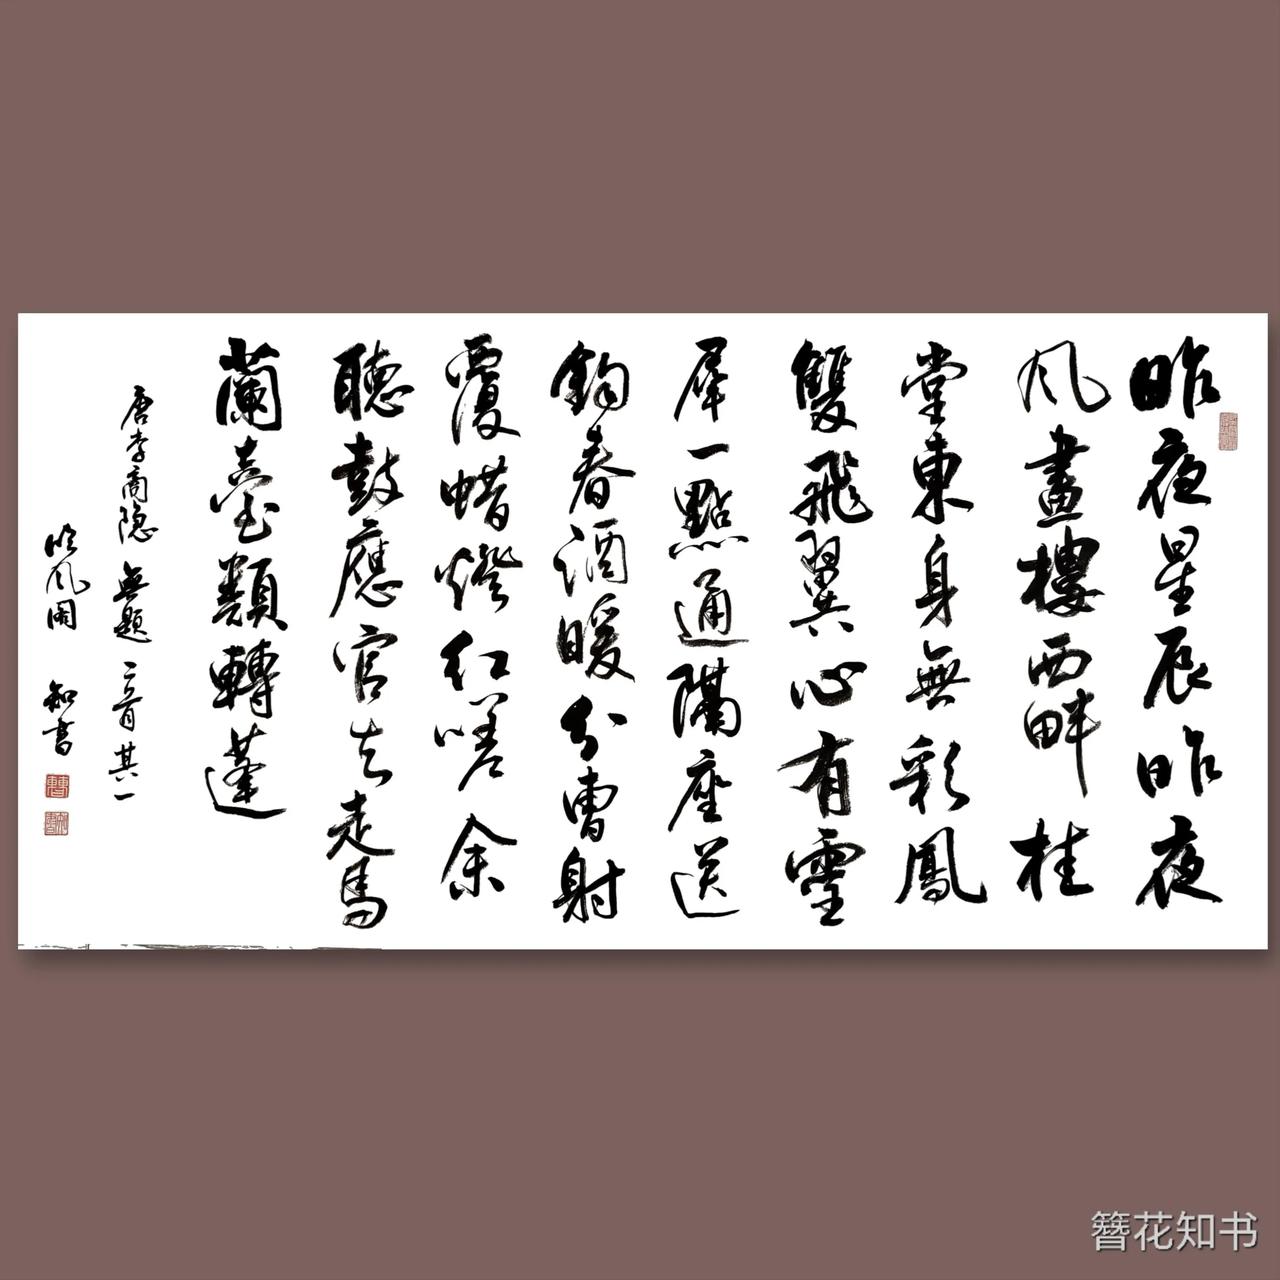 昨夜星辰昨夜
风畫樓西畔桂
堂東身無彩鳳
雙飛翼心有靈
犀一點通隔座送
鉤春酒暖分曹射
覆蜡燈红嗟余
聽鼓應官去走馬
蘭臺類轉蓬
唐李商隐 無題 二首 其一
吟风閣 知書
簪花知书